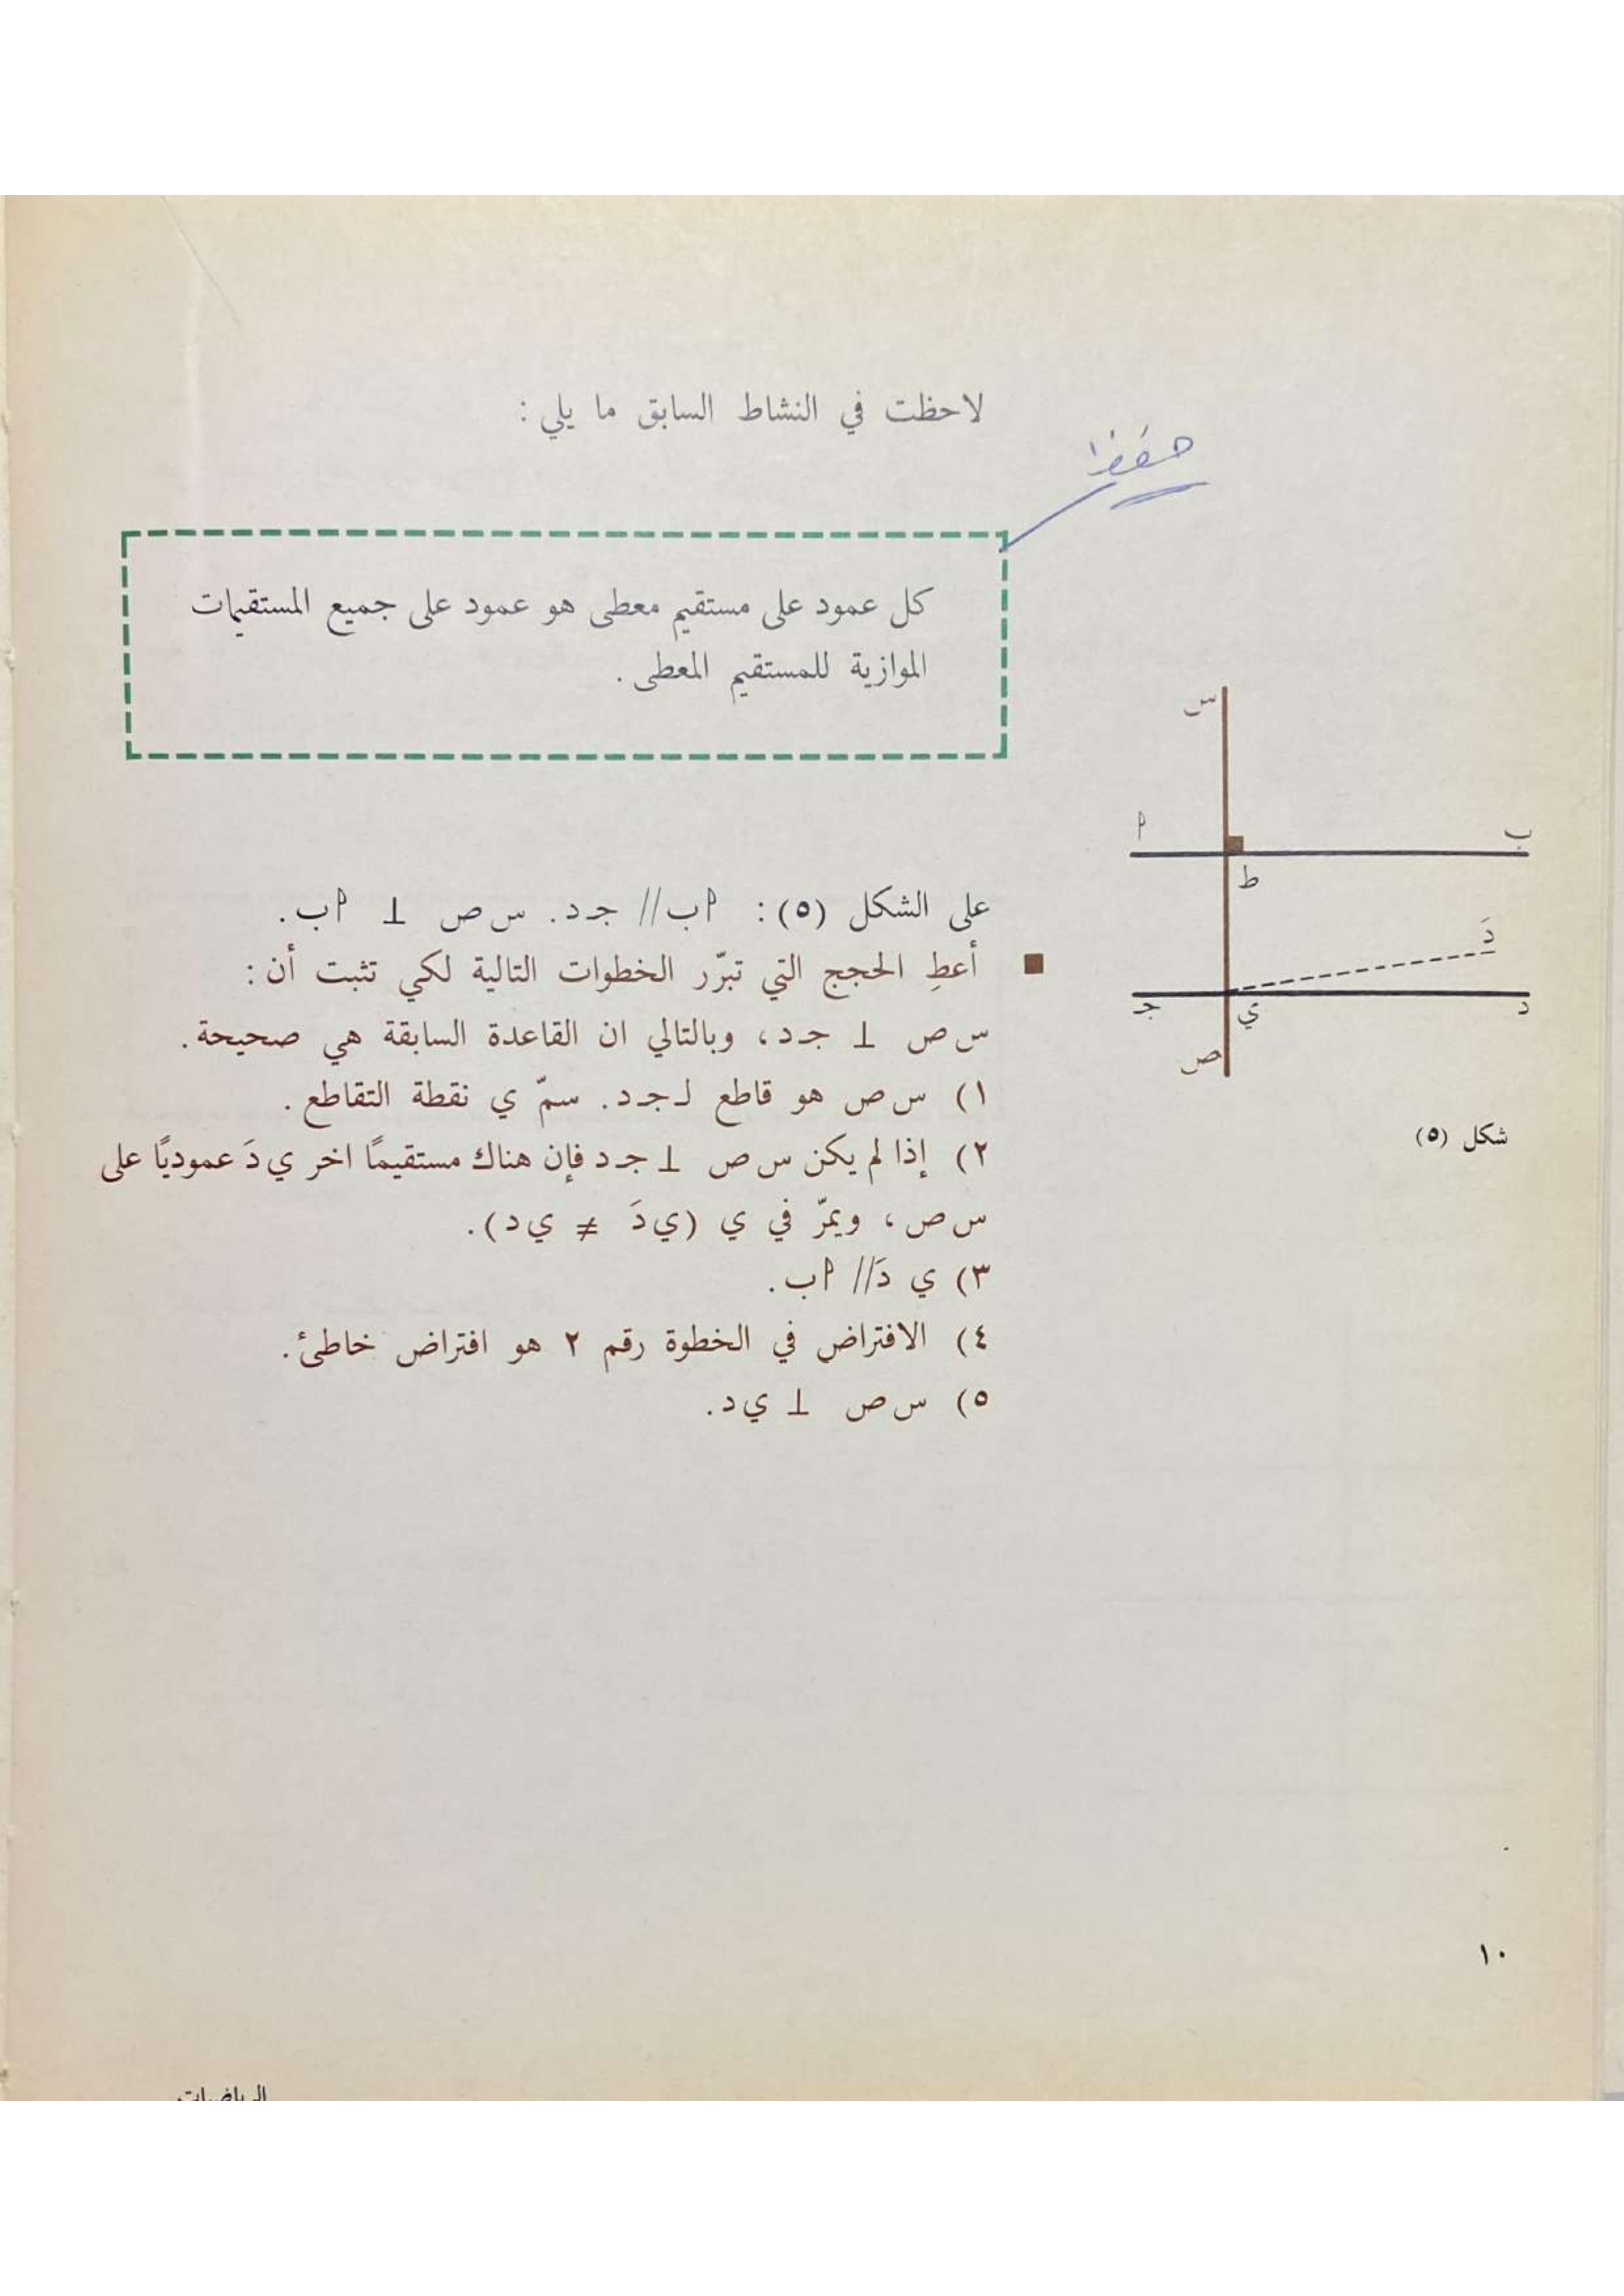 لاحظت في النشاط السابق ما يلي :
حفظ
كل عمود على مستقيم معطى هو عمود على جميع المستقيمات
الموازية للمستقيم المعطى .
س
أ
ب
ط
دَ
جـ
ي
د
ص
شكل (٥)
على الشكل (٥) : أب // جـ د . س ص ⊥ أب .
■ أعطِ الحجج التي تبرّر الخطوات التالية لكي تثبت أن :
س ص ⊥ جـ د ، وبالتالي ان القاعدة السابقة هي صحيحة .
١) س ص هو قاطع لـ جـ د . سمّ ي نقطة التقاطع .
٢) إذا لم يكن س ص ⊥ جـ د فإن هناك مستقيمًا اخر ي دَ عموديًا على
س ص ، ويمرّ في ي (ي دَ ≠ ي د) .
٣) ي دَ // أب .
٤) الافتراض في الخطوة رقم ٢ هو افتراض خاطئ .
٥) س ص ⊥ ي د .
١٠
الرياضيات